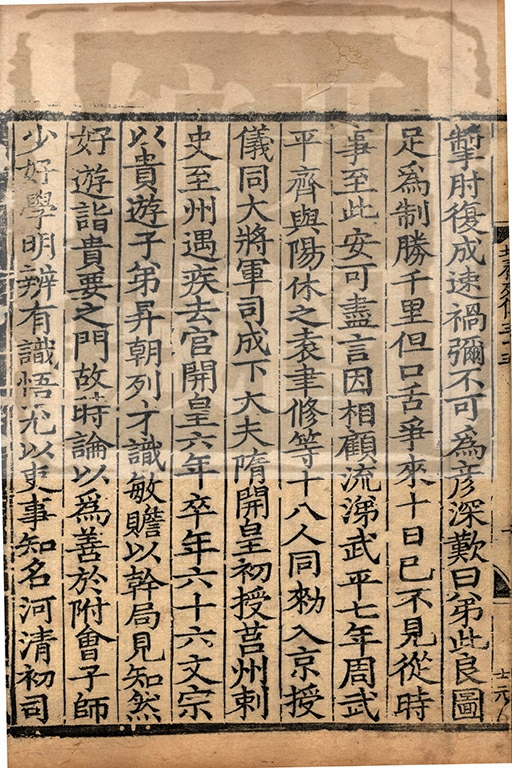 掣肘復成速禍彌不可爲彦深歎曰弟此良圖
足爲制勝千里但口舌爭來十日已不見從時
事至此安可盡言因相顧流涕武平七年周武
平齊與陽休之袁聿修等十八人同勑入京授
儀同大將軍司成下大夫隋開皇初授莒州刺
史至州遇疾去官開皇六年卒年六十六文宗
以貴遊子弟昇朝列才識敏贍以幹局見知然
好遊詣貴要之門故時論以爲善於附會子師
少好學明辨有識悟尤以吏事知名河清初司